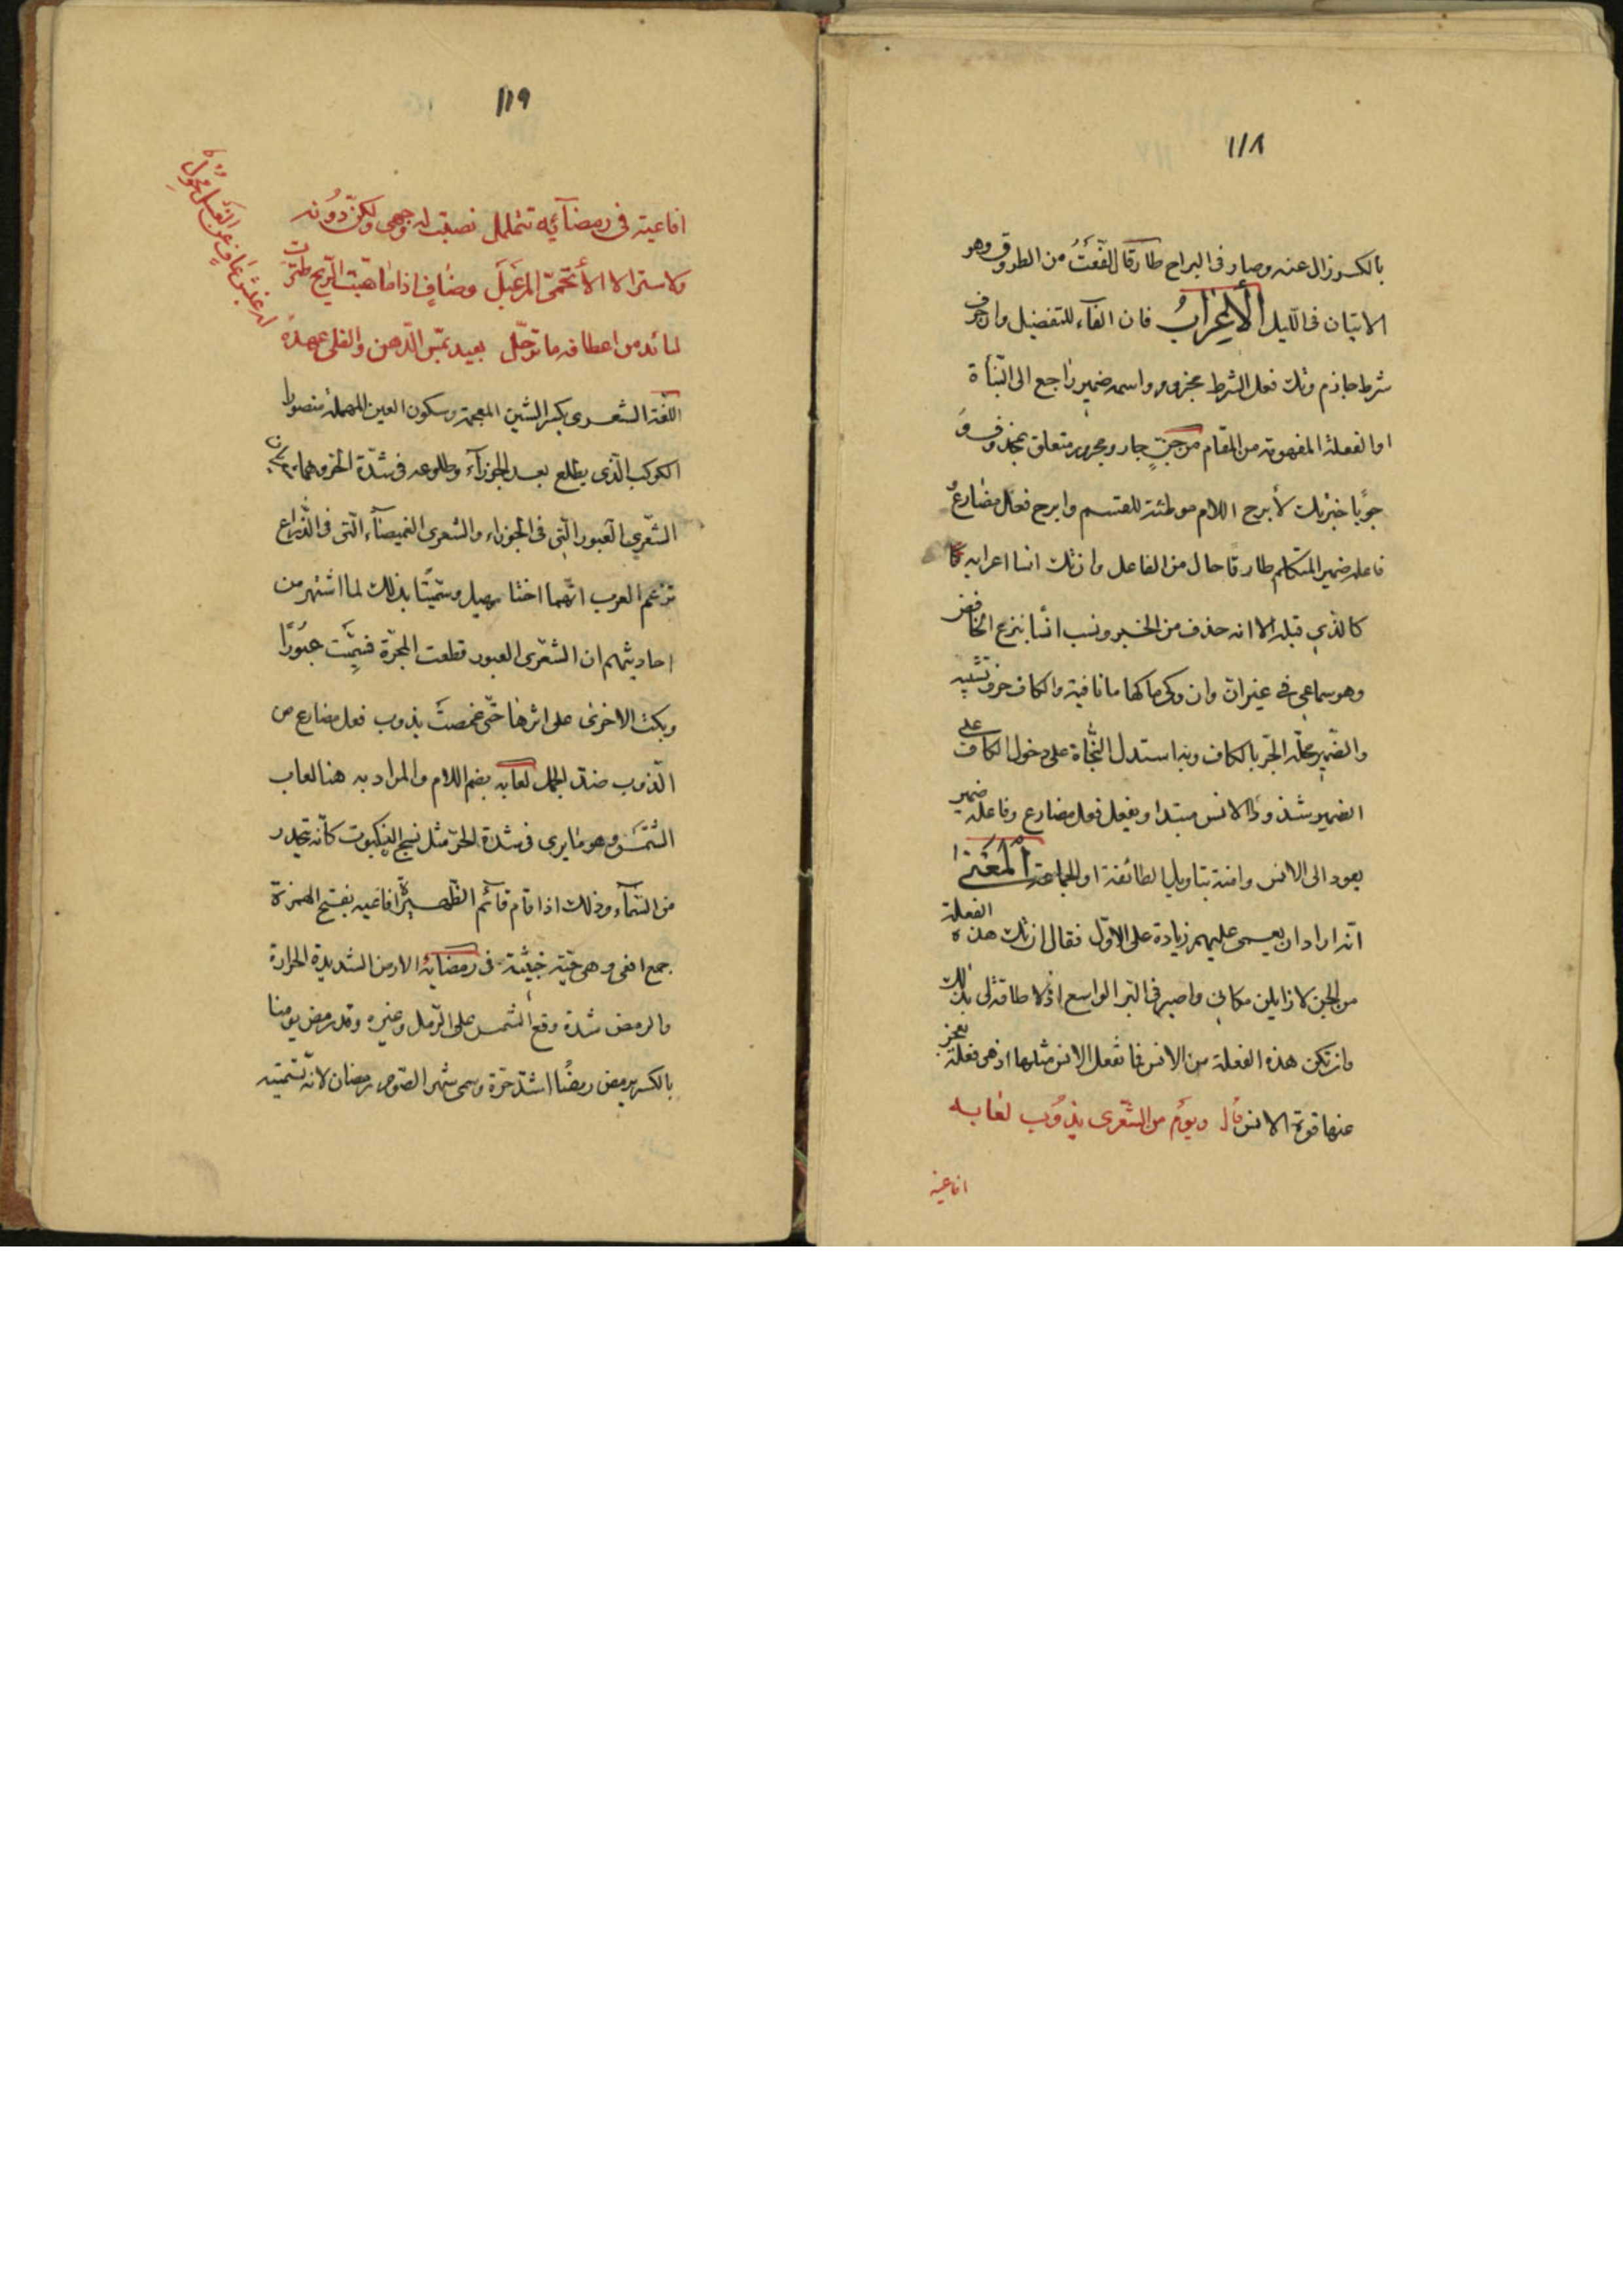 ١١٨
بالكسر زال عنه وصار فى البراح طارقا الفّعَتُ من الطروق وهو
الاتيان فى الليل الْأَعْرَابُ فان الفآء للتفضيل وان حرف
شرط جازم ويك فعل الشرط مجزوم واسمه ضمير راجع الى النبأة
او الفعلة المفهومة من المقام من جنٍّ جار ومجرور متعلق بمحذوف و
جوبًا خبر يك لأبرح اللام موطئة للقسم وابرح فعل مضارع
فاعله ضمير المتكلم طارقًا حال من الفاعل وان يك انسا اعرابه
كالذي قبله الا انه حذف من الخبر ونسب انسًا بنزع الخافض
وهو سماعي في غير انّ وان وكى ما كها ما نافية والكاف حرف تشبيه
والضّمير محلّه الجرّ بالكاف وبه استدل النُّحَاة على دخول الكاف على
الضمير شذوذا الانس مبتدا ويفعل فعل مضارع وفاعله ضمير
يعود الى الانس وانثه بتاويل الطائفة او الجماعة اَلْمَعْنىٰ
انّه اراد ان يعمى عليهم زيادة على الاوّل فقال ان يك هذه الفعلة
من الجن لازايلن مكانى واصير فى البر الواسع اذ لا طاقة لى بذلك
وان تكن هذه الفعلة من الانس فما تفعل الانس مثلها اذ هى فعلة تعجز
عنها قوة الانس قال ويوم من الشّعرى يذوب لعابه
افاعيه
١١٩
افاعيه فى رمضآئه تتململ نصبت له وجهى ولكنّ دُونه
ولا ستر الا الأتحمىّ المرعبل وضافٍ اذا ما هبّت الرّيح طيّرت
لبائد من اعطافه ما ترجّل بعيد بمسّ الدّهن والفلى عهده
له عبس عافٍ من الغسل محول
اللّغة الشعرى بكسر الشين المعجمة وسكون العين المهملة مقصورا
الكوكب الّذى يطلع بعد الجوزآء وطلوعه فى شدّة الحر وهما
الشّعرى العبور الّتى فى الجوزاء والشعرى الغميصآء الّتى فى الذّراع
تزعم العرب انّهما اختا سهيل وسمّيتا بذلك لما اشتهر من
احاديثهم ان الشعرى العبور قطعت المجرّة فسمّيت عبُورًا
وبكت الاخرى على اثرها حتّى غمصت يذوب فعل مضارع من
الذوب ضدّ الجمد لعابه بضم اللام والمراد به هنا لعاب
الشّمس وهو ما يرى فى شدة الحرّ مثل نسج العنكبوت كأنّه ينحدر
من السّمآء وذلك اذا قام قآئم الظّهيرة افاعيه بفتح الهمزة
جمع افعى وهى حيّة خبيثة فى رمضائه الارض الشديدة الحرارة
والرمض شدة وقع الشمس على الرّمل وغيره وقد رمض يومنا
بالكسر يرمض رمضًا اشتدّ حرّه وسمى شهر الصّوم رمضان لانّه تسميته